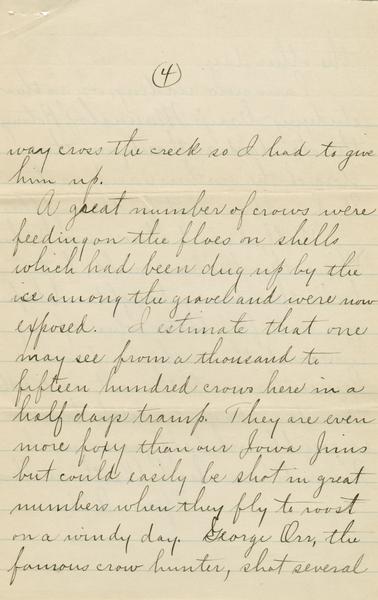 (4)
way cross the creek so I had to give
him up.
A great number of crows were
feeding on the floes on shells
which had been dug up by the
ice among the gravel and were now
exposed. I estimate that one
may see from a thousand to
fifteen hundred crows here in a
half days tramp. They are even
more foxy than our Iowa Jims
but could easily be shot in great
numbers when they fly to roost
on a windy day. George Orr, the
famous crow hunter, shot several